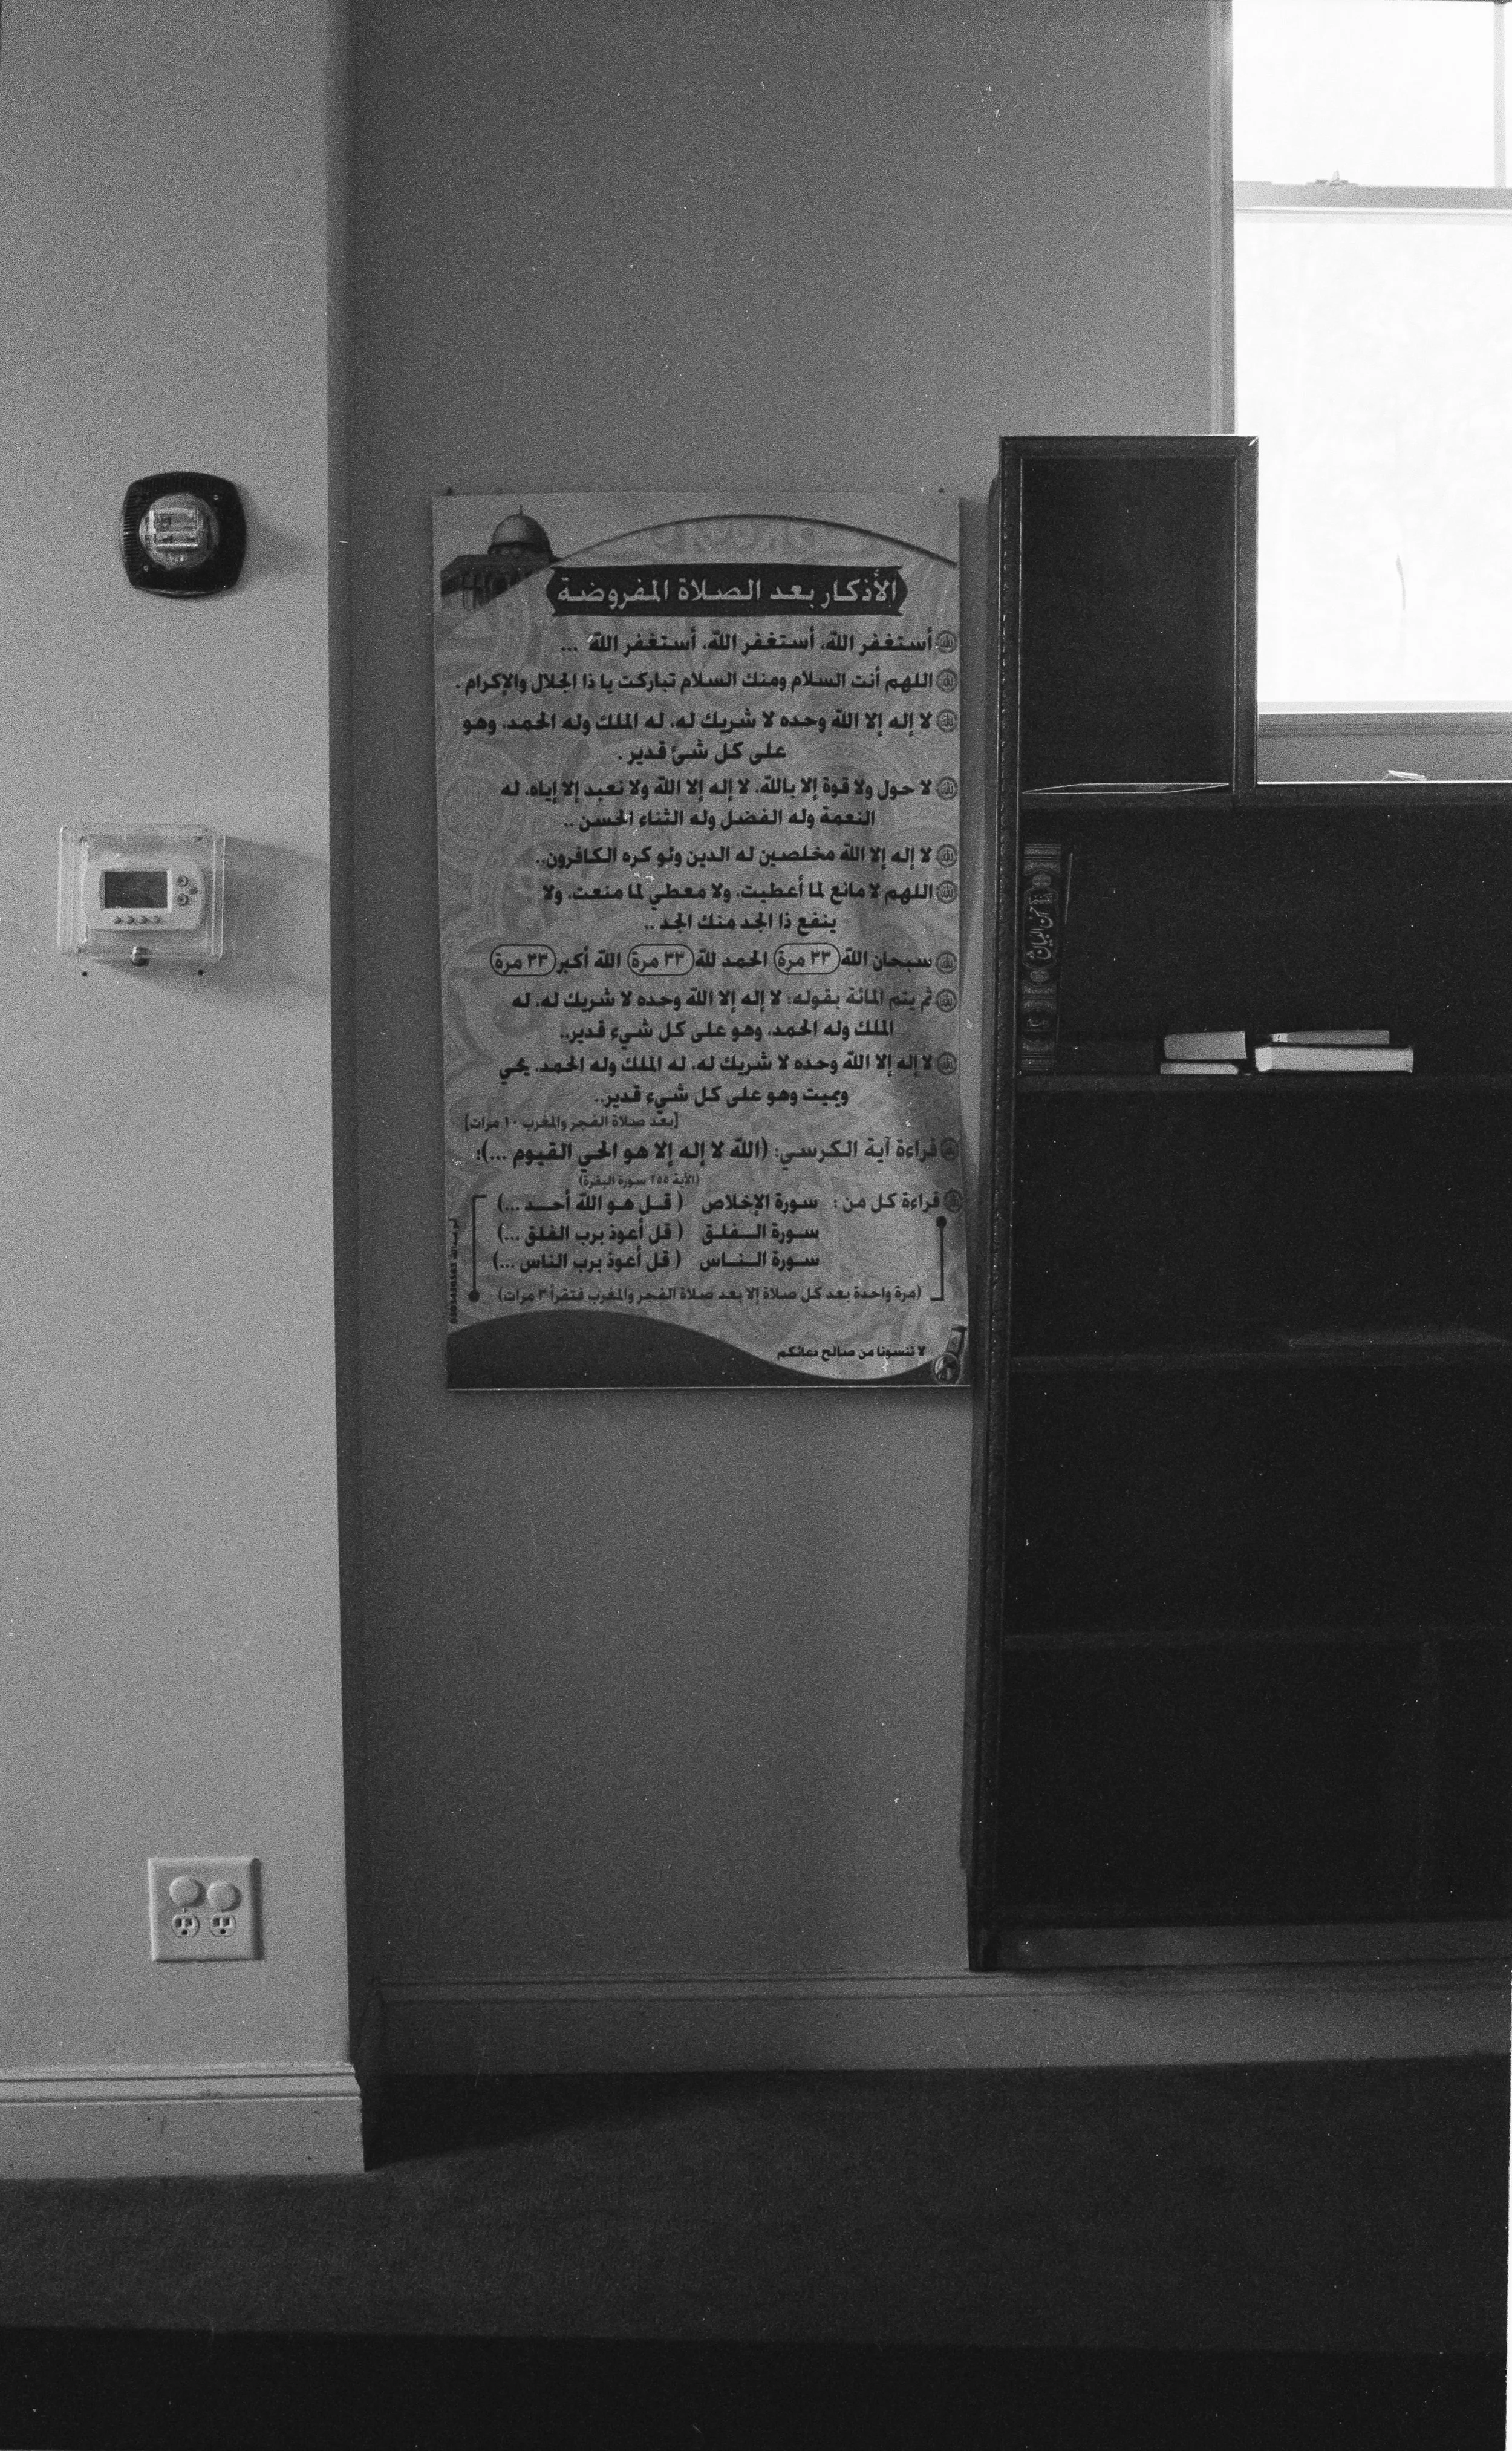 الأذكار بعد الصلاة المفروضة
أستغفر الله، أستغفر الله، أستغفر الله ...
اللهم أنت السلام ومنك السلام تباركت يا ذا الجلال والإكرام.
لا إله إلا الله وحده لا شريك له، له الملك وله الحمد، وهو
على كل شئ قدير.
لا حول ولا قوة إلا بالله، لا إله إلا الله ولا نعبد إلا إياه، له
النعمة وله الفضل وله الثناء الحسن..
لا إله إلا الله مخلصين له الدين ولو كره الكافرون..
اللهم لا مانع لما أعطيت، ولا معطي لما منعت، ولا
ينفع ذا الجد منك الجد ..
سبحان الله ٣٣ مرة الحمد لله ٣٣ مرة الله أكبر ٣٣ مرة
ثم يتم المائة بقوله: لا إله إلا الله وحده لا شريك له، له
الملك وله الحمد، وهو على كل شيء قدير..
لا إله إلا الله وحده لا شريك له، له الملك وله الحمد، يحي
ويميت وهو على كل شيء قدير..
[بعد صلاة الفجر والمغرب ١٠ مرات]
قراءة آية الكرسي: (الله لا إله إلا هو الحي القيوم ...):
(الآية ٢٥٥ سورة البقرة)
قراءة كل من : سورة الإخلاص ( قل هو الله أحد ...)
سورة الفلق ( قل أعوذ برب الفلق ...)
سورة الناس ( قل أعوذ برب الناس ...)
(مرة واحدة بعد كل صلاة إلا بعد صلاة الفجر والمغرب فتقرأ ٣ مرات)
لا تنسونا من صالح دعائكم
أحسن البيان